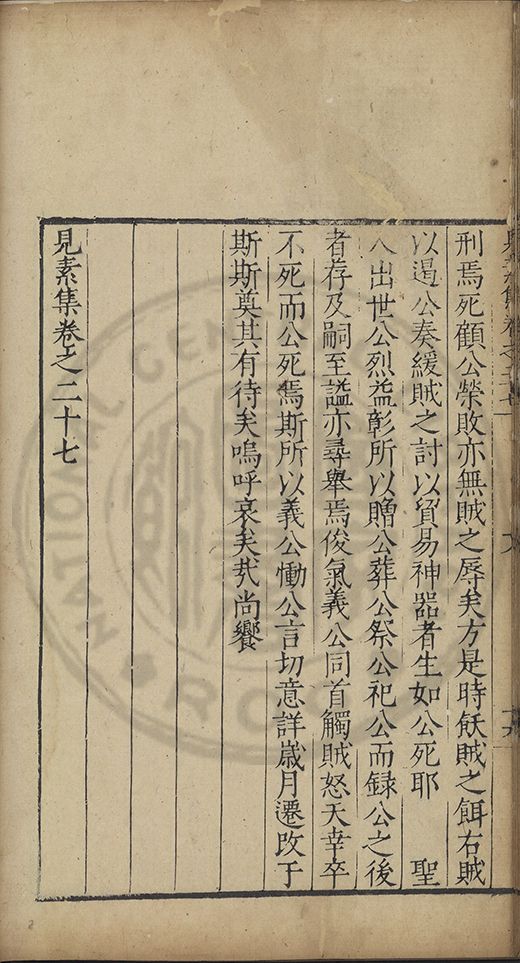 刑焉死顧公榮敗亦無賊之辱矣方是時飫賊之餌右賊
以遏公奏緩賊之討以貿易神器者生如公死耶 聖
人出世公烈益彰所以贈公葬公祭公祀公而録公之後
者存及嗣至謚亦尋舉焉俊氣義公同首觸賊怒天幸卒
不死而公死焉斯所以義公慟公言切意詳歲月遷改于
斯斯奠其有待矣嗚呼哀矣哉尚饗
見素集卷之二十七